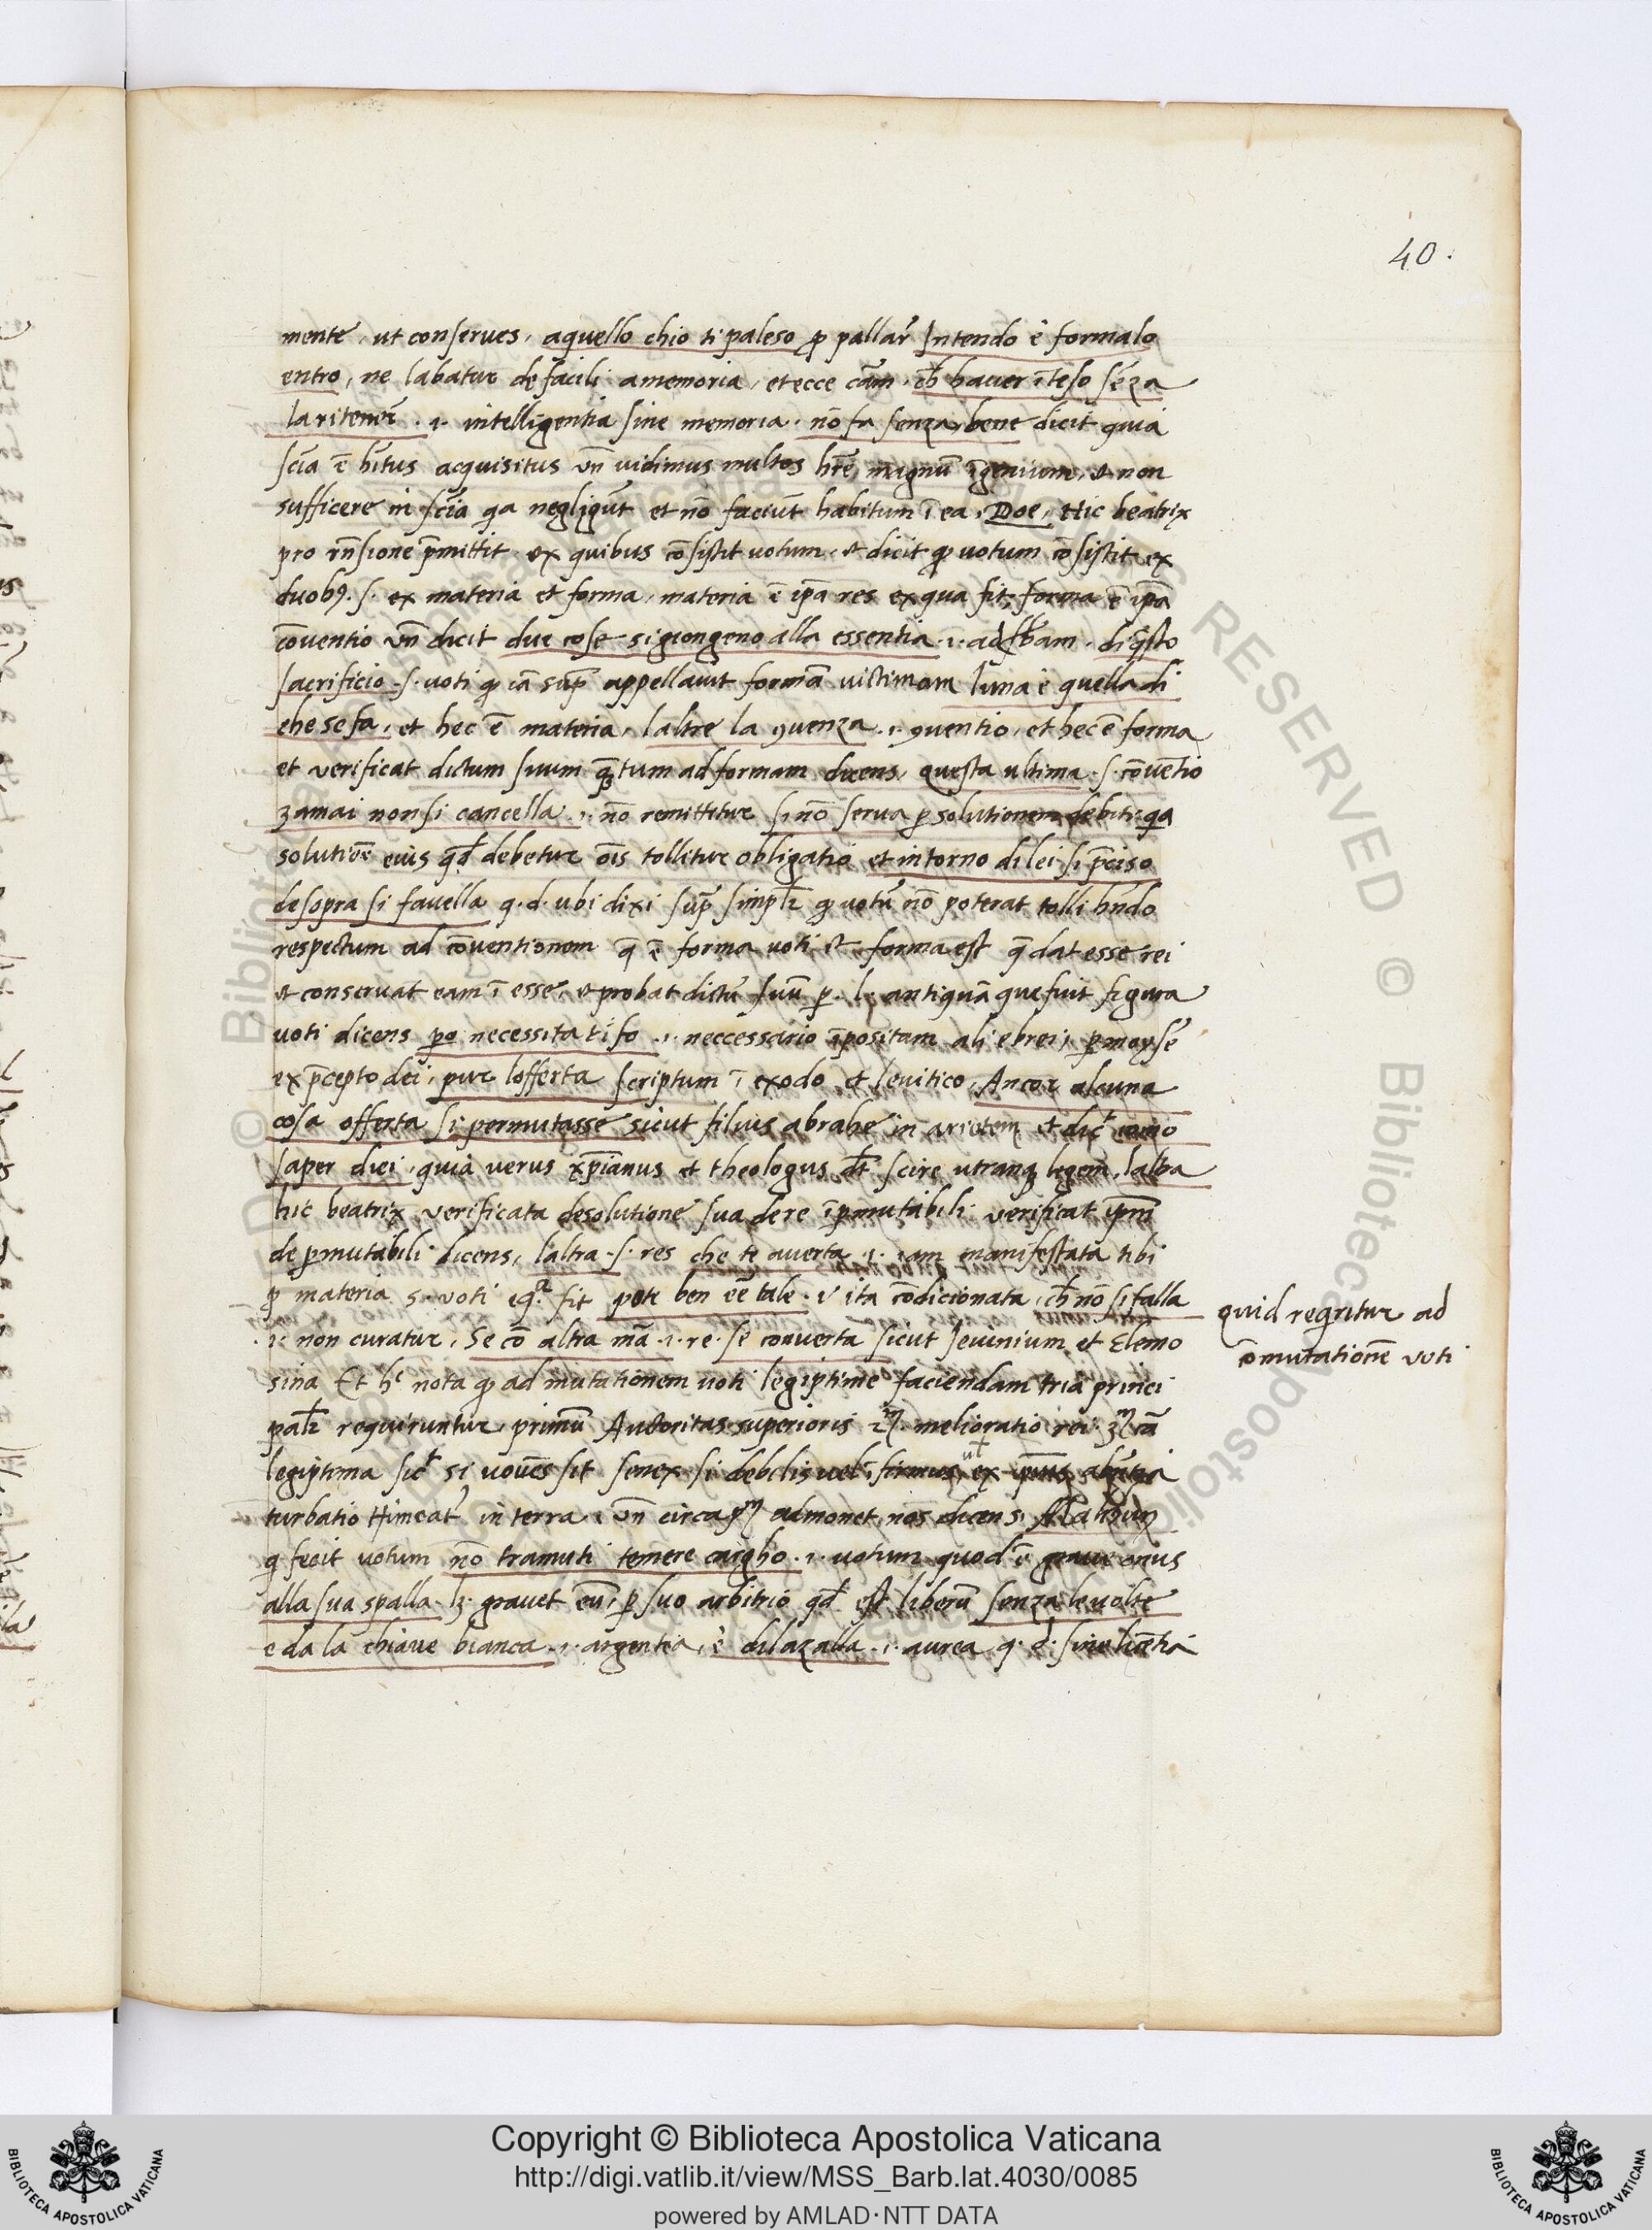 40.
mente, ut conserves, aquello chio ti paleso ꝓ pallar̄ Intendo e formalo
entro, ne labatur de facili a memoria, et ecce cām, ch̄ haver īteso sēza
la ritener̄ .i. intelligentia sine memoria. nō fa senza, bene dicit quia
scīa ē hītus acquisitus vn̄ vidimus multos hr̄e magnū īgenium, et non
sufficere in scīa qa negligūt et nō faciūt habitum ī ea, Doe, Hic beatrix
pro rn̄sione p̄mittit ex quibus cōsistit votum, et dicit ꝙ votum cōsistit ex
duobꝫ .s. ex materia et forma, materia ē ip̄a res ex qua fit, forma ē ip̄a
cōventio vn̄ dicit due cose si giongeno alla essentia .i. ad sb̄am. di q̄sto
sacrificio .s. voti ꝙ iā sup̄ appellavit formā victimam luna e quella di
che se fa, et hec ē materia, laltre la ꝯuenza .i. ꝯventio, et hec ē forma
et verificat dictum suum q̄tum ad formam dicens, questa ultima .s. cōvētio
zamai non si cancella .i. nō remittitur si nō serva ꝑ solutionem debiti qa
solutiōe eius qd̄ debetur oīs tollitur obligatio et intorno di lei si p̄ciso
desopra si favella q. d. ubi dixi sup̄ simpl̄r ꝙ votū nō poterat tolli hn̄do
respectum ad cōventionem q̄ ē forma voti et forma est q̄ dat esse rei
et conservat eam ī esse, et probat dictū suū ꝑ .l. antiquā que fuit figura
voti dicens pero necessitati fo .i. neccessario īpositam ali ebrei, ꝑ moysē
ex p̄cepto dei, pur lofferta scriptum ī exodo et levitico, Ancor alcuna
cosa offerta si permutasse sicut filius abrahe in arietem et dic̄ como
saper diei, quia verus xp̄ianus et theologus d̄t scire utranqꝫ legem, laltra
hic beatrix verificata de solutione sua de re īꝑmutabili verificat ip̄m
de ꝑmutabili dicens, laltra .s. res che te averta .i. iam manifestata tibi
ꝓ materia s. voti fit pote ben eē tale .i. ita cōdicionata, ch̄ nō si falla
.i. non curatur, Se cō altra mā .i. re. se converta sicut Ieiunium et Elemo
sina Et hᶜ nota ꝙ ad mutationem voti legiptime faciendam tria princi
pal̄r requiruntur, primū Auctoritas superioris 2ᵐ. melioratio rei 3ᵐ cā
legiptima sic̄ si vovēs sit senex si debilis vel īfirmus
turbatio in terra, vn̄ circa pᵐ admonet nos dicens,
q fecit votum nō tramuti temere caigho .i. votum quod ē grave onus
alla sua spalla lꝫ gravet eū, ꝑ suo arbitrio qd̄ est liberū senza le volte
e da la chiave bianca .i. argentea, e dilazalla .i. aurea q. d. sine licētia
quid reqritur ad
cōmutationē voti
Copyright © Biblioteca Apostolica Vaticana
http://digi.vatlib.it/view/MSS_Barb.lat.4030/0085
powered by AMLAD·NTT DATA